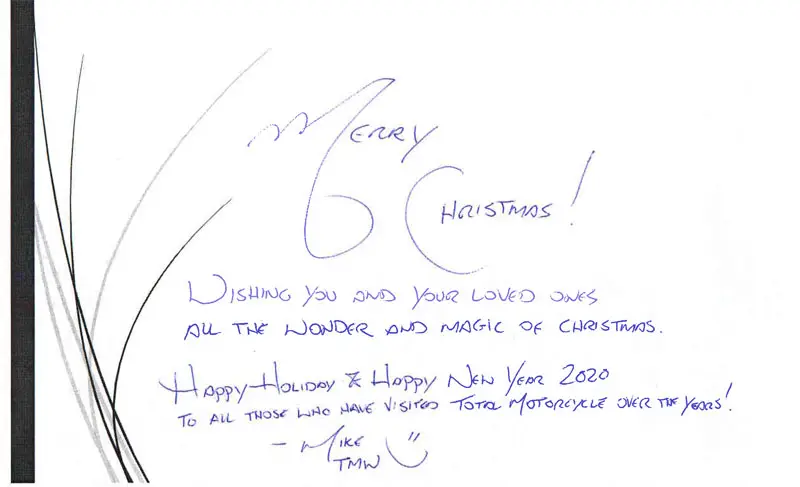 Merry
Christmas!
Wishing you and your loved ones
all the wonder and magic of Christmas.
Happy Holiday & Happy New Year 2020
to all those who have visited Total Motorcycle over the years!
- Mike
TMW